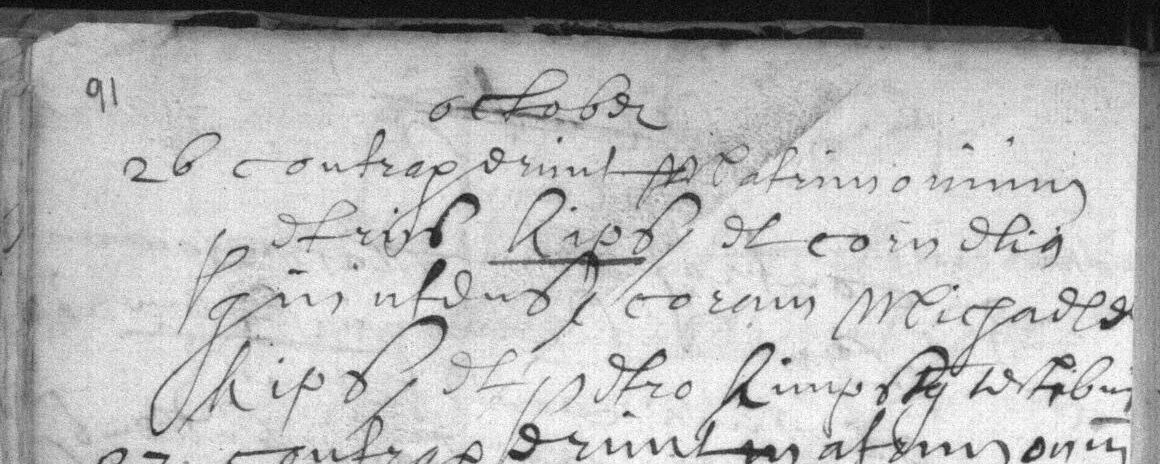 91
october
26 contraxerunt Matrimonium
petrus kips et cornelia
coram Michaele
kips et petro testibus
27 contraxerunt matrimonium